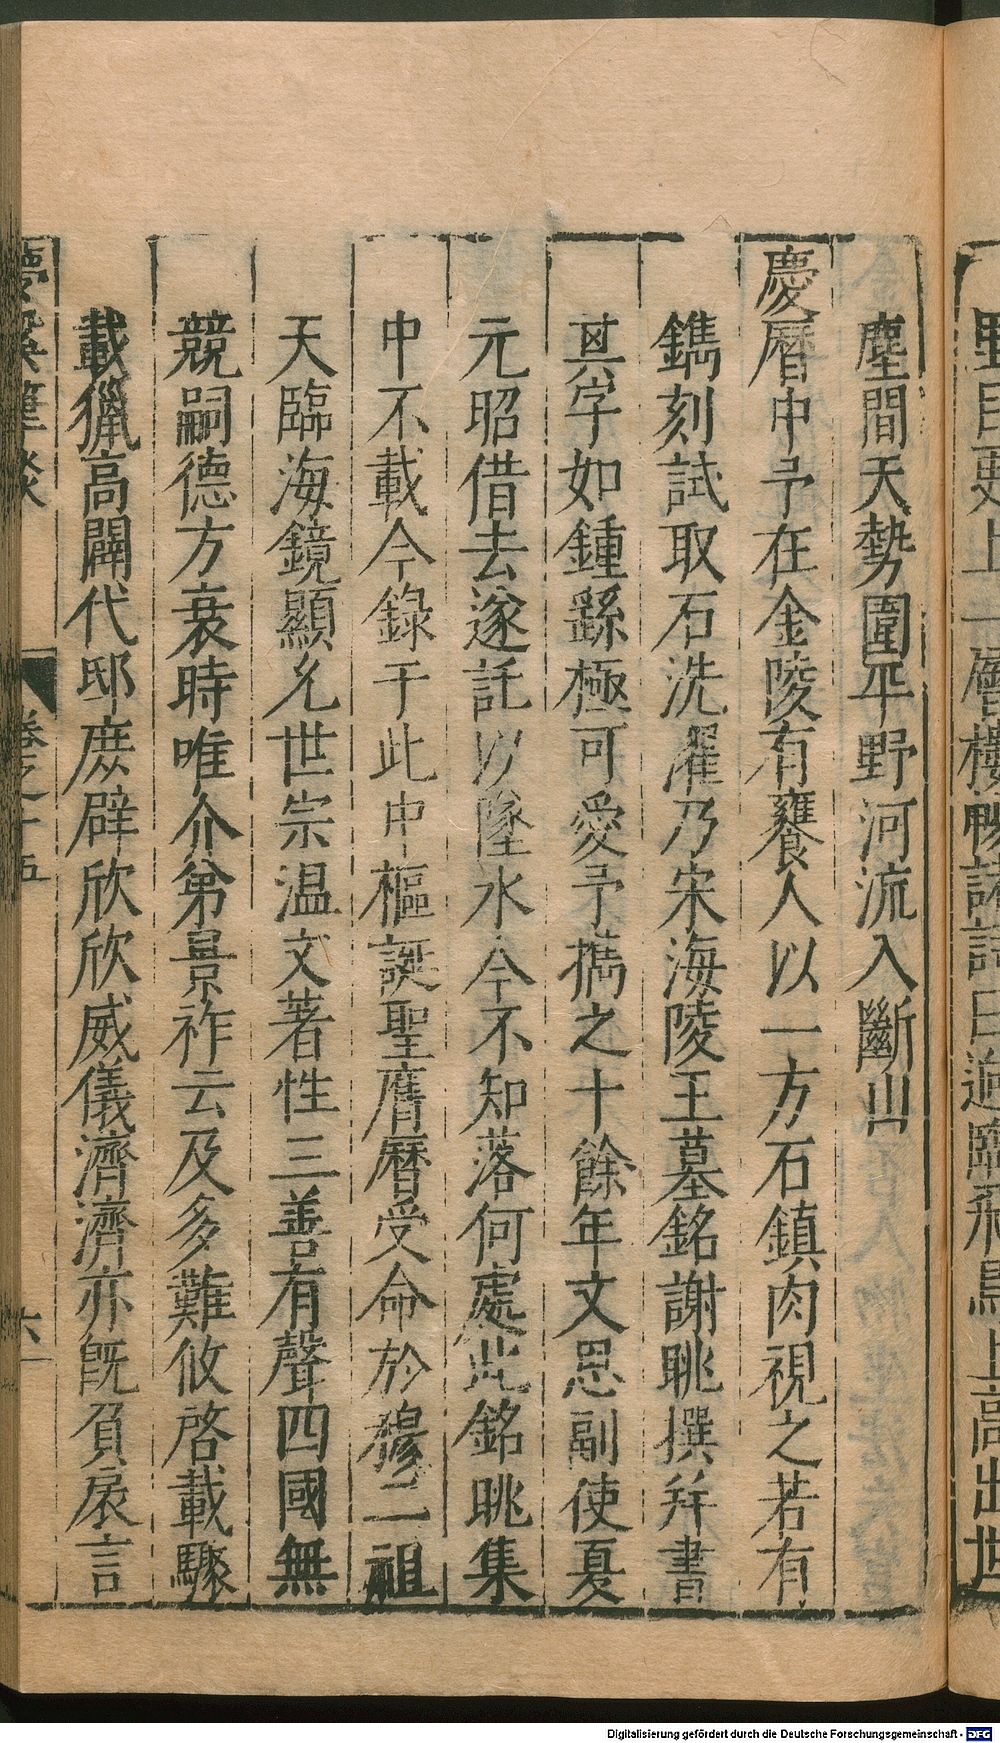 塵間天勢圍平野河流入斷山
慶曆中予在金陵有饔人以一方石鎮肉視之若有
鐫刻試取石洗濯乃宋海陵王墓銘謝朓撰并書
其字如鍾繇極可愛予攜之十餘年文思副使夏
元昭借去遂託以墜水今不知落何處此銘朓集
中不載今錄于此中樞誕聖膺曆受命於穆二祖
天臨海鏡顯允世宗温文著性三善有聲四國無
競嗣德方衰時唯介弟景祚云及多難攸啓載驟
載獵高闢代邸庶辟欣欣威儀濟濟亦既負扆言
夢溪筆談 卷之十五 六
Digitalisierung gefördert durch die Deutsche Forschungsgemeinschaft - DFG